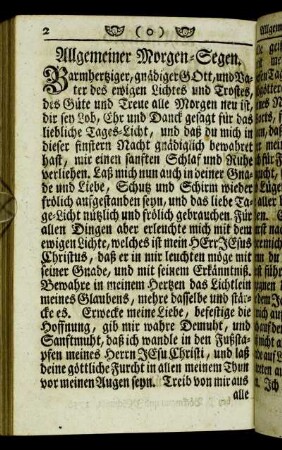 2 ( o )
Allgemeiner Morgen-Segen.
Barmhertziger, gnädiger GOtt, und Va-
ter des ewigen Lichtes und Trostes,
des Güte und Treue alle Morgen neu ist,
dir sey Lob, Ehr und Danck gesagt für das
liebliche Tages-Licht, und daß du mich in
dieser finstern Nacht gnädiglich bewahret
hast, mir einen sanften Schlaf und Ruhe
verliehen. Laß mich nun auch in deiner Gna-
de und Liebe, Schutz und Schirm wieder
frölich aufgestanden seyn, und das liebe Ta-
ge-Licht nützlich und frölich gebrauchen. Für
allen Dingen aber erleuchte mich mit dem
ewigen Lichte, welches ist mein HErr JEsus
Christus, daß er in mir leuchten möge mit
seiner Gnade, und mit seinem Erkänntniß.
Bewahre in meinem Hertzen das Lichtlein
meines Glaubens, mehre dasselbe und stär-
cke es. Erwecke meine Liebe, befestige die
Hoffnung, gib mir wahre Demuht, und
Sanftmuht, daß ich wandle in den Fußsta-
pfen meines Herrn JEsu Christi, und laß
deine göttliche Furcht in allen meinem Thun
vor meinen Augen seyn. Treib von mir aus
alle